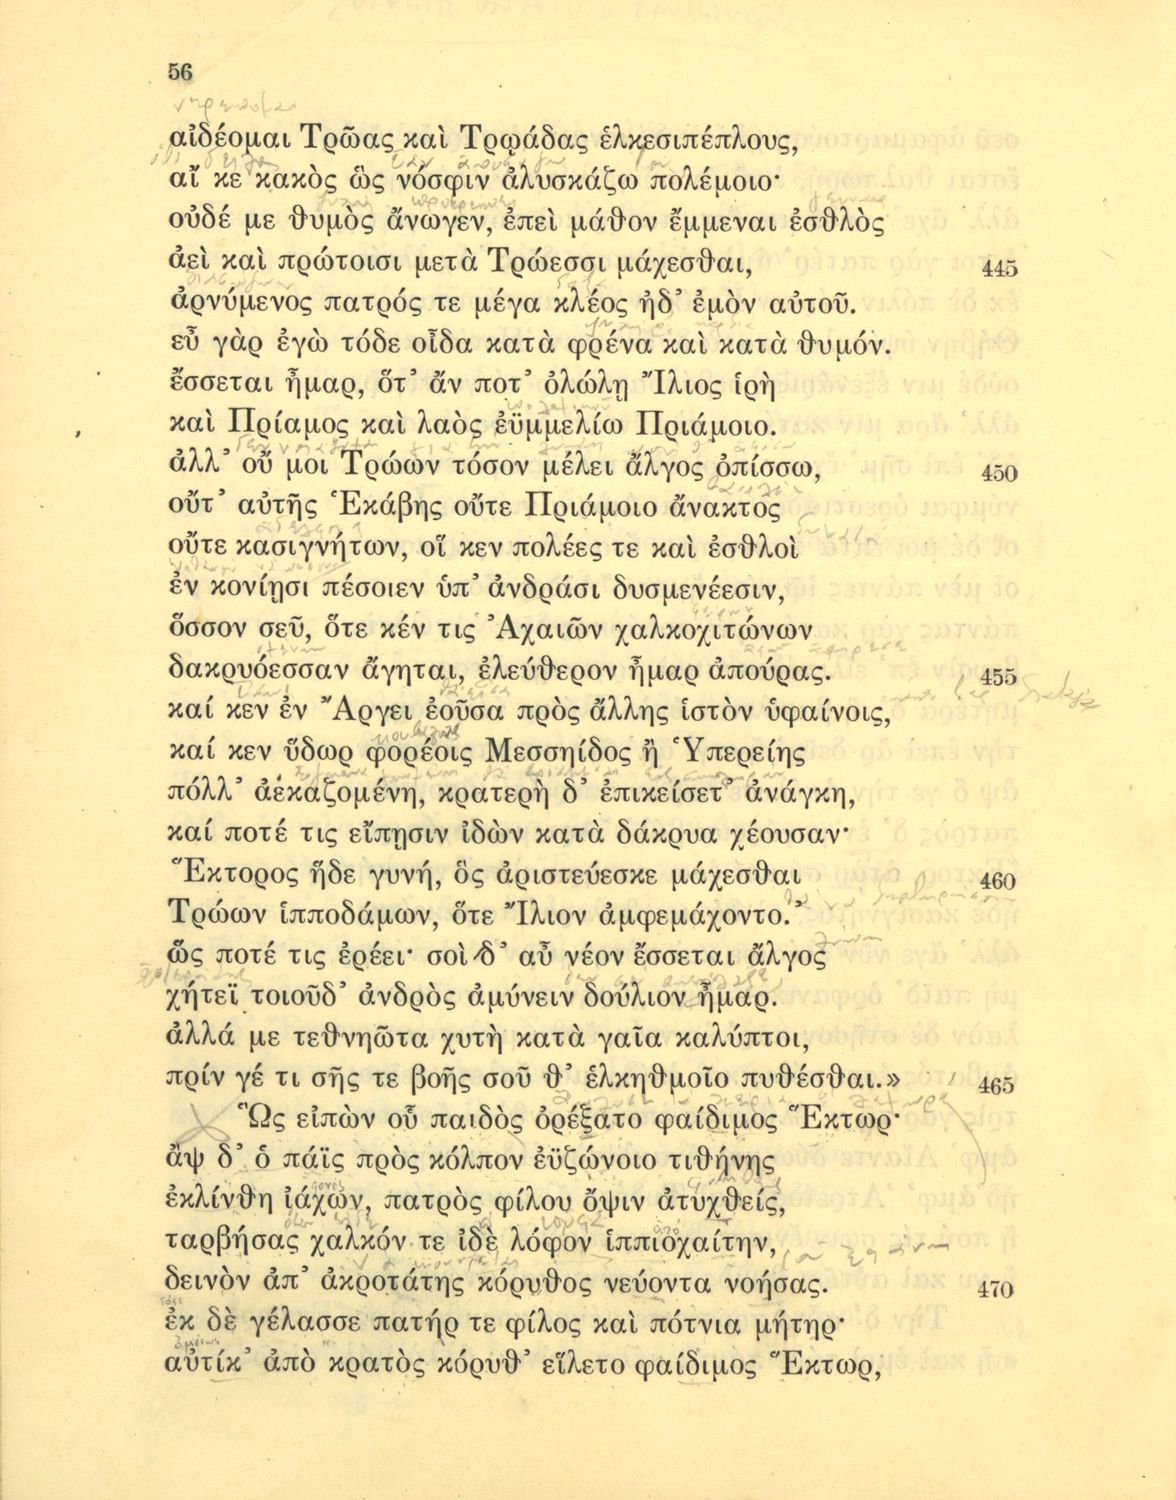 56
αἰδέομαι Τρῶας καὶ Τρῳάδας ἑλκεσιπέπλους,
αἴ κε κακὸς ὣς νόσφιν ἀλυσκάζω πολέμοιο·
οὐδέ με θυμὸς ἄνωγεν, ἐπεὶ μάθον ἔμμεναι ἐσθλὸς
ἀεὶ καὶ πρώτοισι μετὰ Τρώεσσι μάχεσθαι, 445
ἀρνύμενος πατρός τε μέγα κλέος ἠδ’ ἐμὸν αὐτοῦ.
εὖ γὰρ ἐγὼ τόδε οἶδα κατὰ φρένα καὶ κατὰ θυμόν.
ἔσσεται ἦμαρ, ὅτ’ ἄν ποτ’ ὀλώλῃ Ἴλιος ἱρὴ
καὶ Πρίαμος καὶ λαὸς ἐϋμμελίω Πριάμοιο.
ἀλλ’ οὔ μοι Τρώων τόσον μέλει ἄλγος ὀπίσσω, 450
οὔτ’ αὐτῆς Ἑκάβης οὔτε Πριάμοιο ἄνακτος
οὔτε κασιγνήτων, οἵ κεν πολέες τε καὶ ἐσθλοὶ
ἐν κονίῃσι πέσοιεν ὑπ’ ἀνδράσι δυσμενέεσιν,
ὅσσον σεῦ, ὅτε κέν τις Ἀχαιῶν χαλκοχιτώνων
δακρυόεσσαν ἄγηται, ἐλεύθερον ἦμαρ ἀπούρας. 455
καί κεν ἐν Ἄργει ἐοῦσα πρὸς ἄλλης ἱστὸν ὑφαίνοις,
καί κεν ὕδωρ φορέοις Μεσσηίδος ἢ Ὑπερείης
πόλλ’ ἀεκαζομένη, κρατερὴ δ’ ἐπικείσετ’ ἀνάγκη,
καί ποτέ τις εἴπῃσιν ἰδὼν κατὰ δάκρυα χέουσαν·
Ἕκτορος ἥδε γυνή, ὃς ἀριστεύεσκε μάχεσθαι 460
Τρώων ἱπποδάμων, ὅτε Ἴλιον ἀμφεμάχοντο.’
ὥς ποτέ τις ἐρέει· σοὶ δ’ αὖ νέον ἔσσεται ἄλγος
χήτεϊ τοιοῦδ’ ἀνδρὸς ἀμύνειν δούλιον ἦμαρ.
ἀλλά με τεθνηῶτα χυτὴ κατὰ γαῖα καλύπτοι,
πρίν γέ τι σῆς τε βοῆς σοῦ θ’ ἑλκηθμοῖο πυθέσθαι.» 465
Ὣς εἰπὼν οὗ παιδὸς ὀρέξατο φαίδιμος Ἕκτωρ·
ἂψ δ’ ὁ πάϊς πρὸς κόλπον ἐϋζώνοιο τιθήνης
ἐκλίνθη ἰάχων, πατρὸς φίλου ὄψιν ἀτυχθείς,
ταρβήσας χαλκόν τε ἰδὲ λόφον ἱππιοχαίτην,
δεινὸν ἀπ’ ἀκροτάτης κόρυθος νεύοντα νοήσας. 470
ἐκ δὲ γέλασσε πατήρ τε φίλος καὶ πότνια μήτηρ·
αὐτίκ’ ἀπὸ κρατὸς κόρυθ’ εἵλετο φαίδιμος Ἕκτωρ,